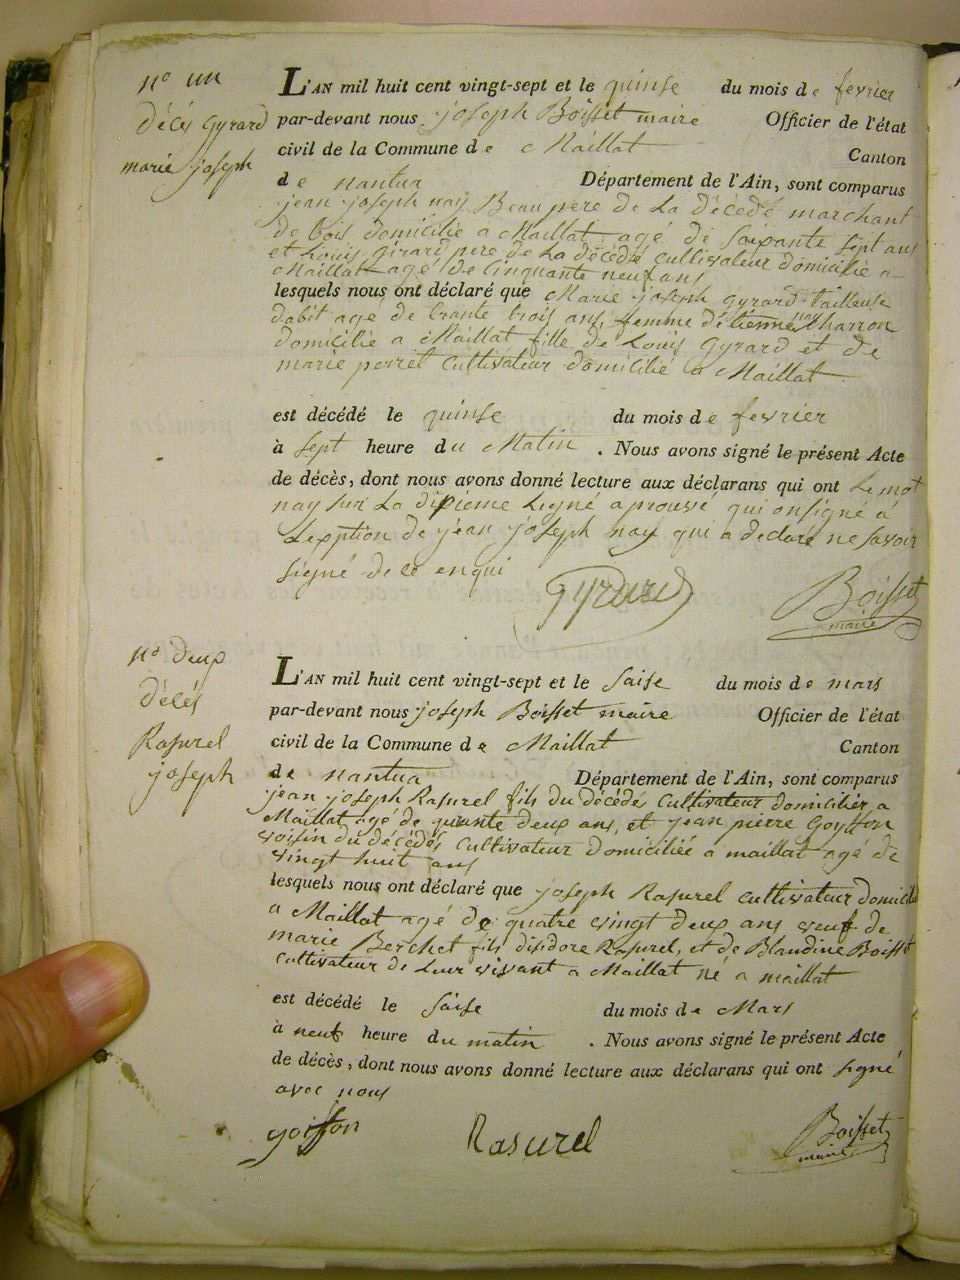 n° un
décés gyrard
marie joseph
L'AN mil huit cent vingt-sept et le quinse du mois de fevrier
par-devant nous joseph Boisset maire Officier de l'état
civil de la Commune de Maillat Canton
de nantua Département de l'Ain, sont comparus
jean joseph nay Beau pere de La décedé marchant
de bois domicilie a Maillat agé de soixante sept ans
et Louis girard pere de La décédés cultivateur domicilié a
Maillat agé de cinquante neuf ans
lesquels nous ont déclaré que Marie joseph gyrard tailleuse
dabit agé de trante trois ans, femme détienne nay Charron
domicilié a Maillat fille de Louis Gyrard et de
marie perret Cultivateur domicilié a Maillat
est décédé le quinse du mois de fevrier
à sept heure du Matin . Nous avons signé le présent Acte
de décès, dont nous avons donné lecture aux déclarans qui ont Le mot
nay sur La dixieme Ligne aprouvé qui onsigné a
Lexption de jean joseph nay qui a declaré ne savoir
signé de ce enqui
Gyrard
Boisset
maire
n° deux
décés
Rasurel
joseph
L'AN mil huit cent vingt-sept et le saise du mois de mars
par-devant nous joseph Boisset maire Officier de l'état
civil de la Commune de Maillat Canton
de nantua Département de l'Ain, sont comparus
jean joseph Rasurel fils du décédés Cultivateur domicilier a
Maillat agé de quarante deux ans, et jean pierre Goyffon
voisin du décédés Cultivateur domiciliée a maillat agé de
vingt huit ans
lesquels nous ont déclaré que joseph Rasurel cultivateur domicilié
a Maillat agé de quatre vingt deux ans veuf de
marie Berchet fils disidore Rasurel, et de Blandine Boisset
Cultivateur de Leur vivant a Maillat né a maillat
est décédé le saise du mois de Mars
à neuf heure du matin . Nous avons signé le présent Acte
de décès, dont nous avons donné lecture aux déclarans qui ont signé
avec nous
goiffon
Rasurel
Boisset
maire